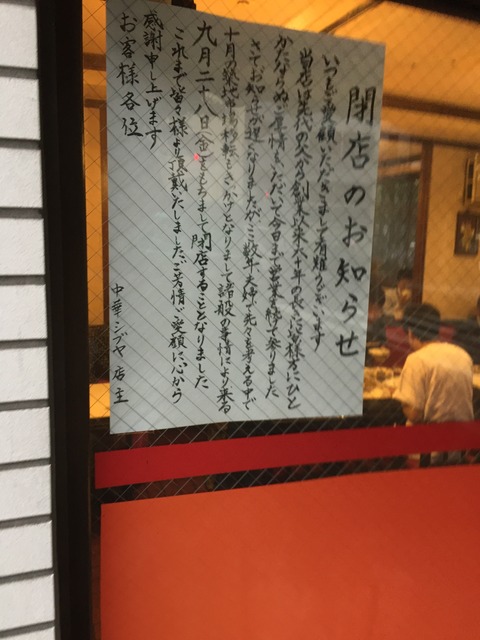 閉店のお知らせ
いつもご愛顧いただきまして有難うございます
当店は先代の父から創業以来六十年の長きに皆様方にひと
かたならぬご厚情をいただいて今日まで営業を続けて参りました
さてお知らせが遅くなりましたがここ数年夫婦で先々を考える中で
十月の築地市場移転もきっかけとなりまして諸般の事情により来る
九月二十八日(金)をもちまして閉店することとなりました
これまで皆々様より頂戴いたしましたご芳情ご愛顧に心から
感謝申し上げます
お客様各位
中華シブヤ 店主